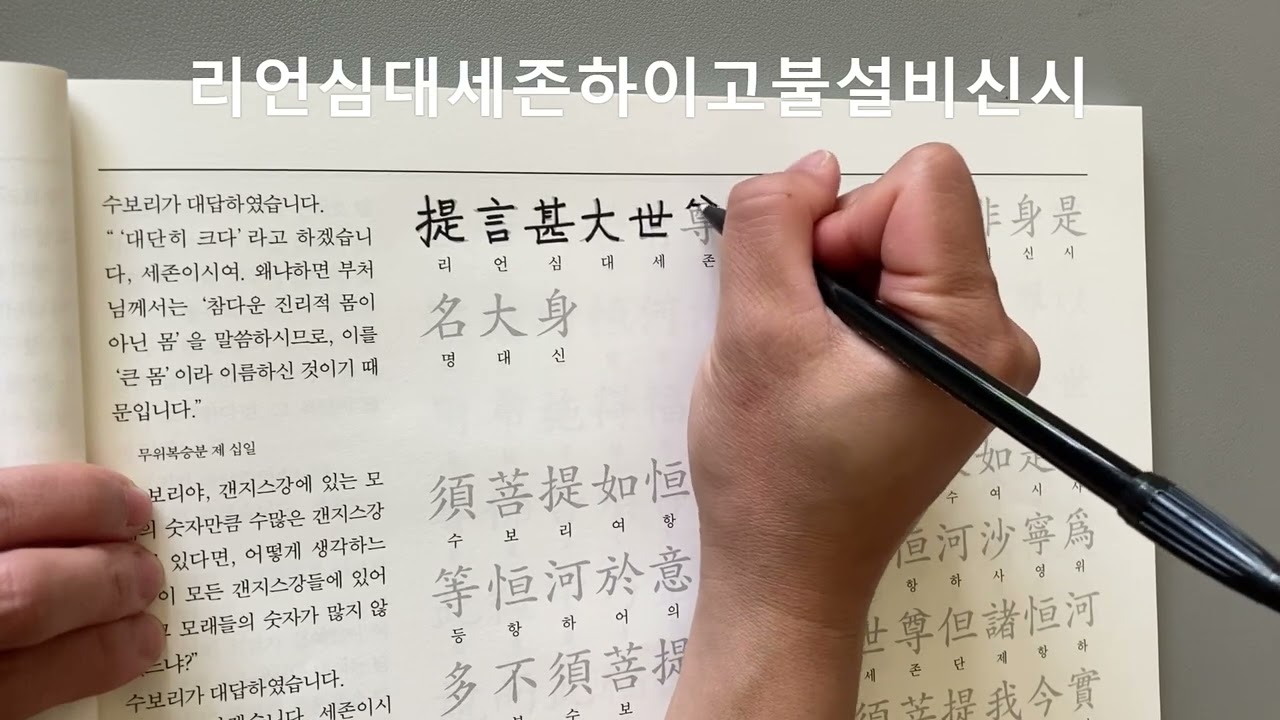 리언심대세존하이고불설비신시
수보리가 대답하였습니다.
“ ‘대단히 크다’ 라고 하겠습니
다, 세존이시여. 왜냐하면 부처
님께서는 ‘참다운 진리적 몸이
아닌 몸’을 말씀하시므로, 이를
‘큰 몸’이라 이름하신 것이기 때
문입니다.”
무위복승분 제 십일
보리야, 갠지스강에 있는 모
숫자만큼 수많은 갠지스강
있다면, 어떻게 생각하느
이 모든 갠지스강들에 있어
모래들의 숫자가 많지 않
느냐?”
수보리가 대답하였습니다.
세존이시
提言甚大世尊 非身是
리 언 심 대 세 존 신 시
名大身
명 대 신
須菩提如恒 如是
수 보 리 여 항 수 여 시 사
等恒河於意 恒河沙寧爲
등 항 하 어 의 항 하 사 영 위
多不須菩提 世尊但諸恒河
보 수 보 세 존 단 제 항 하
須菩提我今實